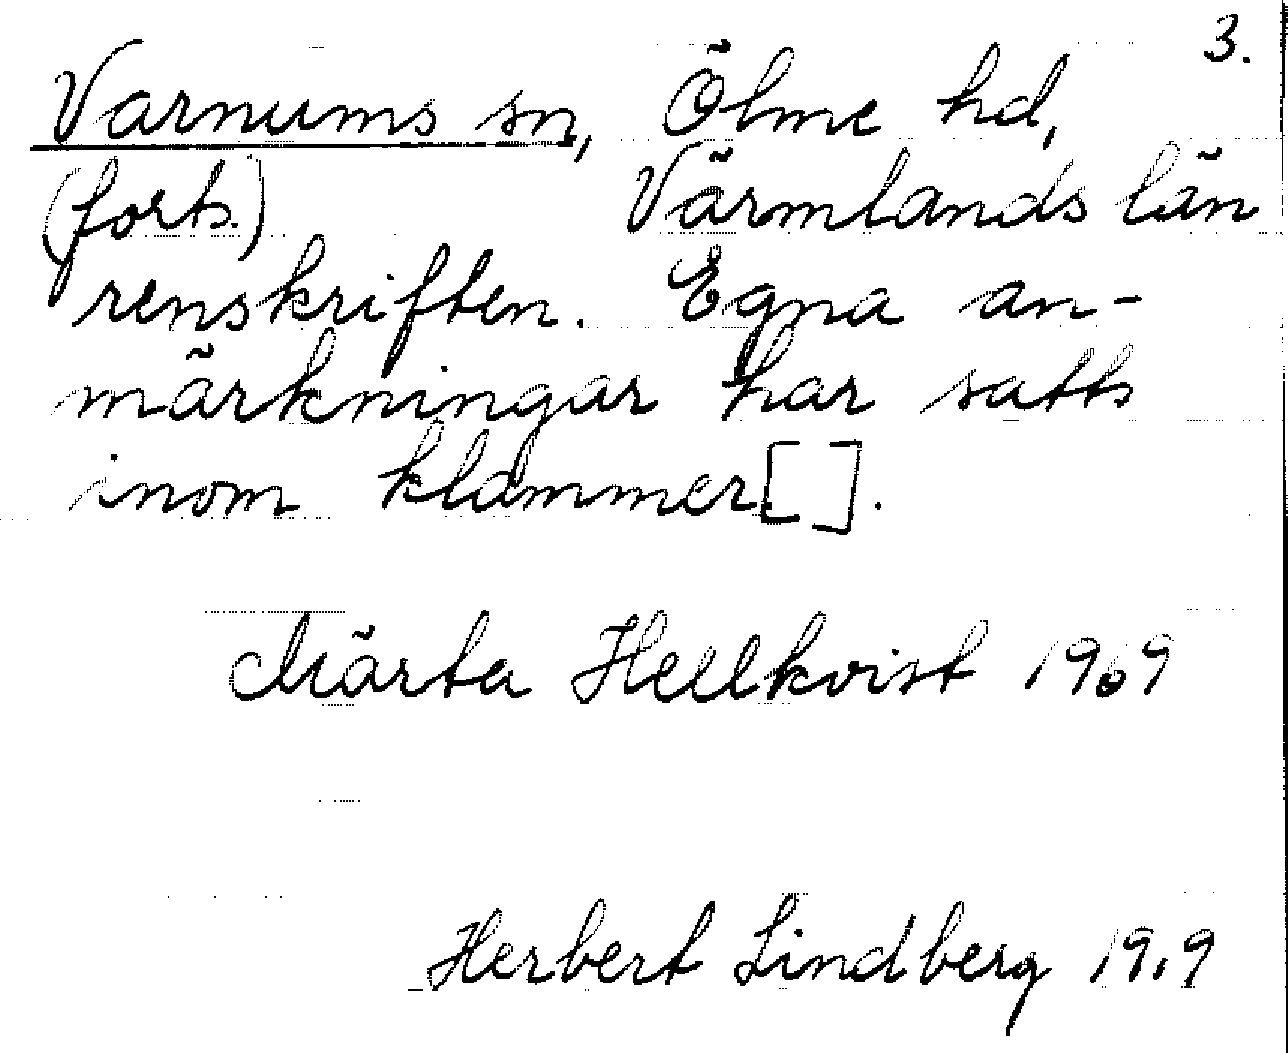 3.
Varnums sn, Ölme hd,
(forts.) Värmlands län
renskriften. Egna an-
märkningar har satts
inom klammer [ ].
Märta Hellkvist 1969
Herbert Lindberg 1919